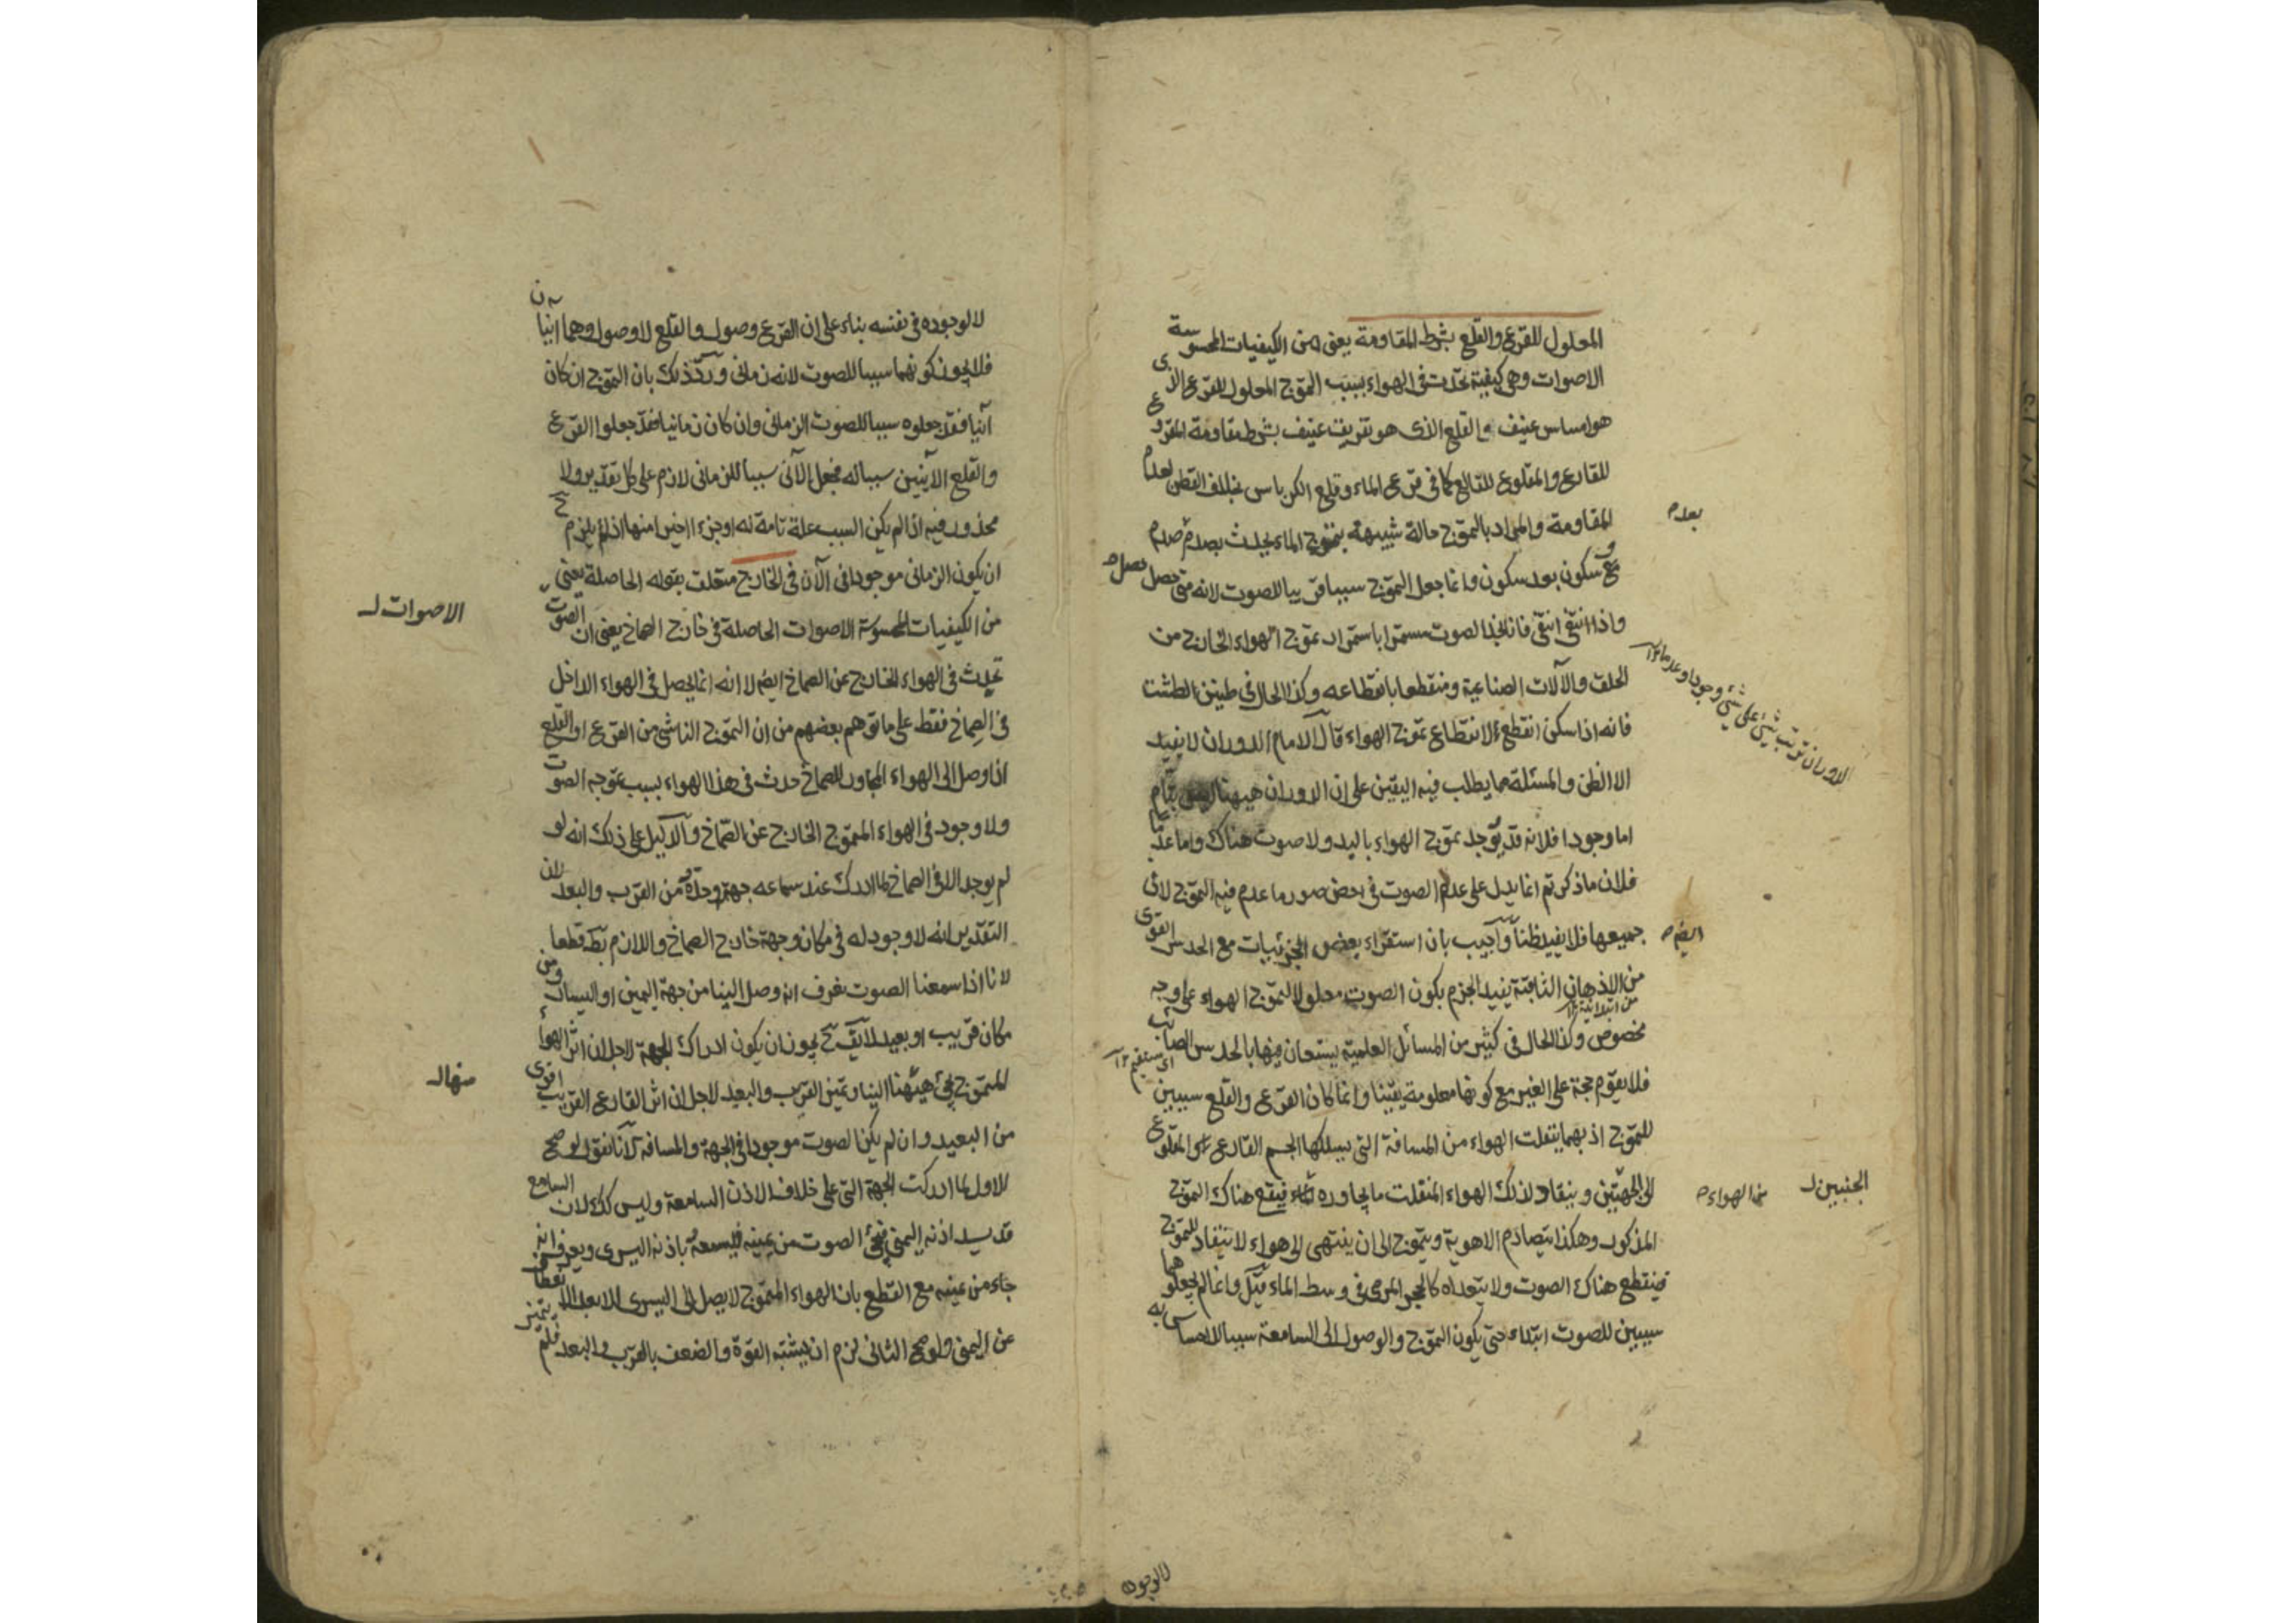 المعلول للقرع والقلع بشرط المقاومة يعني من الكيفيات المحسوسة
الاصوات وهي كيفية تحدث في الهواء بسبب التموج المعلول للقرع الذى
هو امساس عنيف والقلع الذى هو تفريق عنيف بشرط مقاومة المقروع
للقارع والمقلوع للقالع كما في قرع الماء وقلع الكرباس بخلاف القطن لعدم
المقاومة والمراد بالتموج حالة شبيهة بتموج الماء يحدث بصدم صدم
مع سكون بعد سكون وانما جعل التموج سببا قريبا للصوت لانه متى حصل حصل
واذا انتفى انتفى فانا نجد الصوت مستمرا باستمرار تموج الهواء الخارج من
الحلق والآلات الصناعية ومنقطعا بانقطاعه وكذا الحال في طنين الطشت
فانه اذا سكن انقطع لانقطاع تموج الهواء قال الامام الدوران لا يفيد
الا الظن والمسئلة مما يطلب فيه اليقين على ان الدوران ههنا ليس بتام
اما وجودا فلانه قد يوجد تموج الهواء باليد ولا صوت هناك واما عدما
فلان ما ذكرتم انما يدل على عدم الصوت في بعض صور ما عدم فيه التموج لا في
جميعها فلا يفيد ظنا وآجيب بان استقراء بعض الجزئيات مع الحدس القوى
من الاذهان الثاقبة يفيد الجزم بكون الصوت معلولا لتموج الهواء على وجه
مخصوص وكذا الحال في كثير من المسائل العلمية يستعان فيها بالحدس الصائب
فلا يقوم حجة على الغير مع كونها معلومة يقينا وانما كان القرع والقلع سببين
للتموج اذ بهما ينفلت الهواء من المسافة التي يسلكها الجسم القارع او المقلوع
الى الجهتين وينقاد لذلك الهواء المنفلت ما يجاوره فيقع هناك التموج
المذكور وهكذا يتصادم الاهوية ويتموج الى ان ينتهى الى هواء لا ينقاد للتموج
فينقطع هناك الصوت ولا يتعداه كالحجر المرمى في وسط الماء قيل وانما لم يجعلوهما
سببين للصوت ابتداء حتى يكون التموج والوصول الى السامعة سببا للاحساس به
بعدم
الدوران ترتب شئ على شئ وجودا وعدما
ايضا
الجنبين
من الهواء
لا لوجوده
لا لوجوده في نفسه بناء على ان القرع وصول والقلع لا وصول وهما آنيان
فلا يجوز كونهما سببا للصوت لانه زماني ورد ذلك بان التموج ان كان
آنيا فقد جعلوه سببا للصوت الزماني وان كان زمانيا فقد جعلوا القرع
والقلع الآنيين سببا له فجعل الآنى سببا للزمانى لازم على كل تقدير ولا
محذور فيه اذا لم يكن السبب علة تامة له او جزء اخيرا منها اذ لم يلزم ح
ان يكون الزمانى موجودا في الآن في الخارج متعلق بقوله الحاصلة يعني
من الكيفيات المحسوسة الاصوات الحاصلة في خارج الصماخ يعني ان الصوت
تحدث في الهواء الخارج عن الصماخ ايضا لا انه انما يحصل في الهواء الداخل
في الصماخ فقط على ما توهم بعضهم من ان التموج الناشى من القرع او القلع
اذا وصل الى الهواء المجاور للصماخ حدث في هذا الهواء بسبب تموجه الصوت
ولا وجود في الهواء المتموج الخارج عن الصماخ والدليل على ذلك انه لو
لم يوجد الا في الصماخ لما ادرك عند سماعه جهة وحده من القرب والبعد لان
التقدير انه لا وجود له في مكان وجهة خارج الصماخ واللازم بط قطعا
لانا اذا سمعنا الصوت نعرف انه وصل الينا من جهة اليمين او اليسار ومن
مكان قريب او بعيد لا يقال يجوز ان يكون ادراك الجهة لاجل ان اثر الهواء
المتموج يجئ منها الينا وتميز القرب والبعيد لاجل ان اثر القارع القريب اقوى
من البعيد وان لم يكن الصوت موجودا في الجهة والمسافة لآنا نقول لو صح
الاول لما ادركت الجهة التي على خلاف الاذن السامعة وليس كك لان السامع
قد يسد اذنه اليمنى فيجئ الصوت من يمينه فيسمعه باذنه اليسرى ويعرف انه
جاء من يمينه مع القطع بان الهواء المتموج لا يصل الى اليسرى الا بعد الانعطاف
عن اليمنى ولو صح الثانى لزم ان يشتبه القوة والضعف بالقرب والبعد فلم يتميز
الاصوات
منها